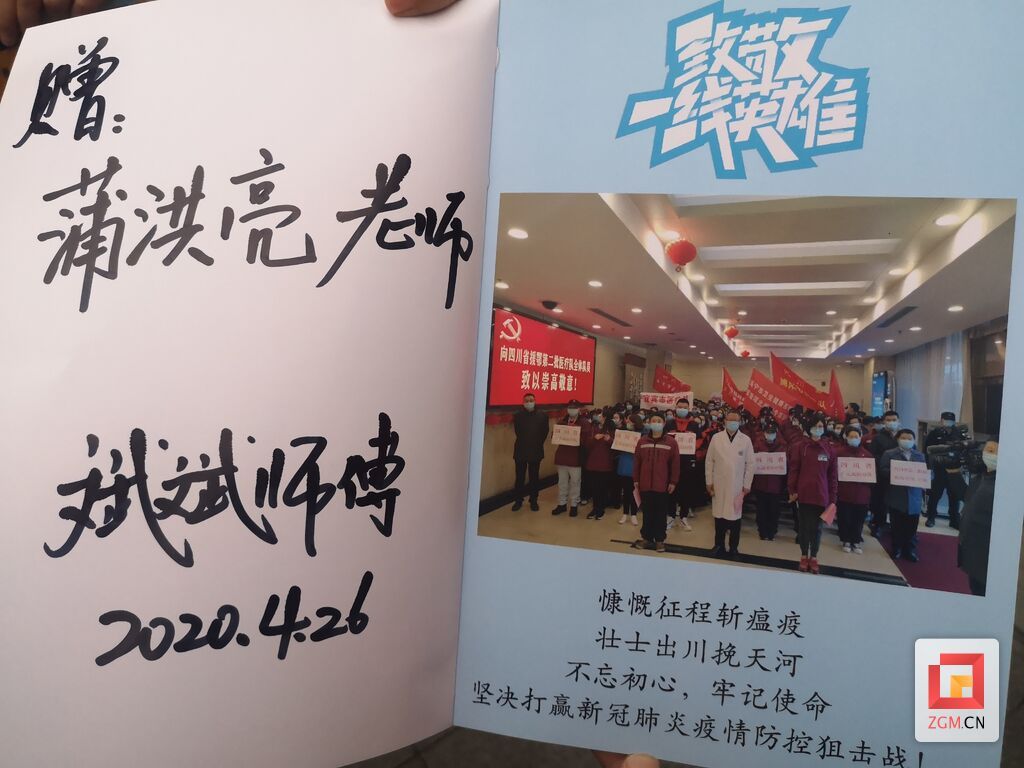 赠:
蒲洪亮老师
斌斌师傅
2020.4.26
致敬
一线英雄
向四川省援鄂第二批医疗队全体队员
致以崇高敬意!
四川省
四川省
慷慨征程斩瘟疫
壮士出川挽天河
不忘初心,牢记使命
坚决打赢新冠肺炎疫情防控狙击战!
ZGM.CN